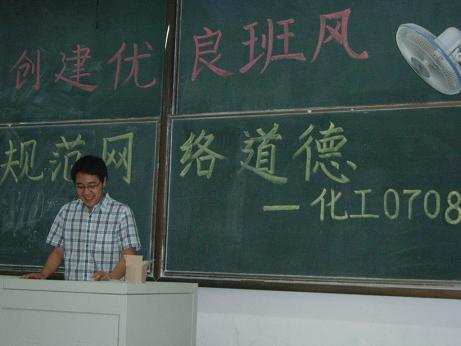 创建优良班风
规范网络道德
—化工0708